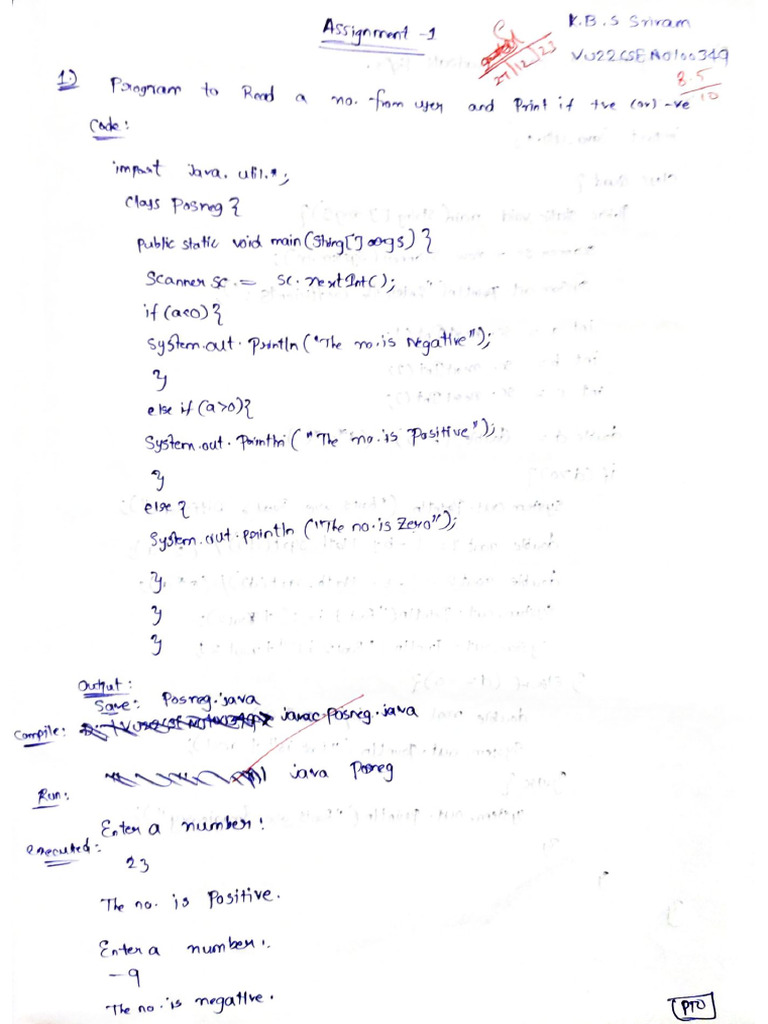 Assignment -1
K.B.S Sriram
VU22CSEN0100349
27/12/23
8.5
10
1.) Program to Read a no. from user and Print if +ve (or) -ve
Code:
import java.util.*;
class Posneg {
public static void main(String[] args) {
Scanner sc. = sc.nextInt();
if (a<0) {
System.out.println("The no. is Negative");
}
else if (a>0) {
System.out.println("The no. is Positive");
}
else {
System.out.println("The no. is Zero");
}
}
}
Output:
Save: Posneg.java
Compile: javac Posneg.java
Run: java Posneg
executed: Enter a number:
23
The no. is Positive.
Enter a number:
-9
The no. is negative.
PTO